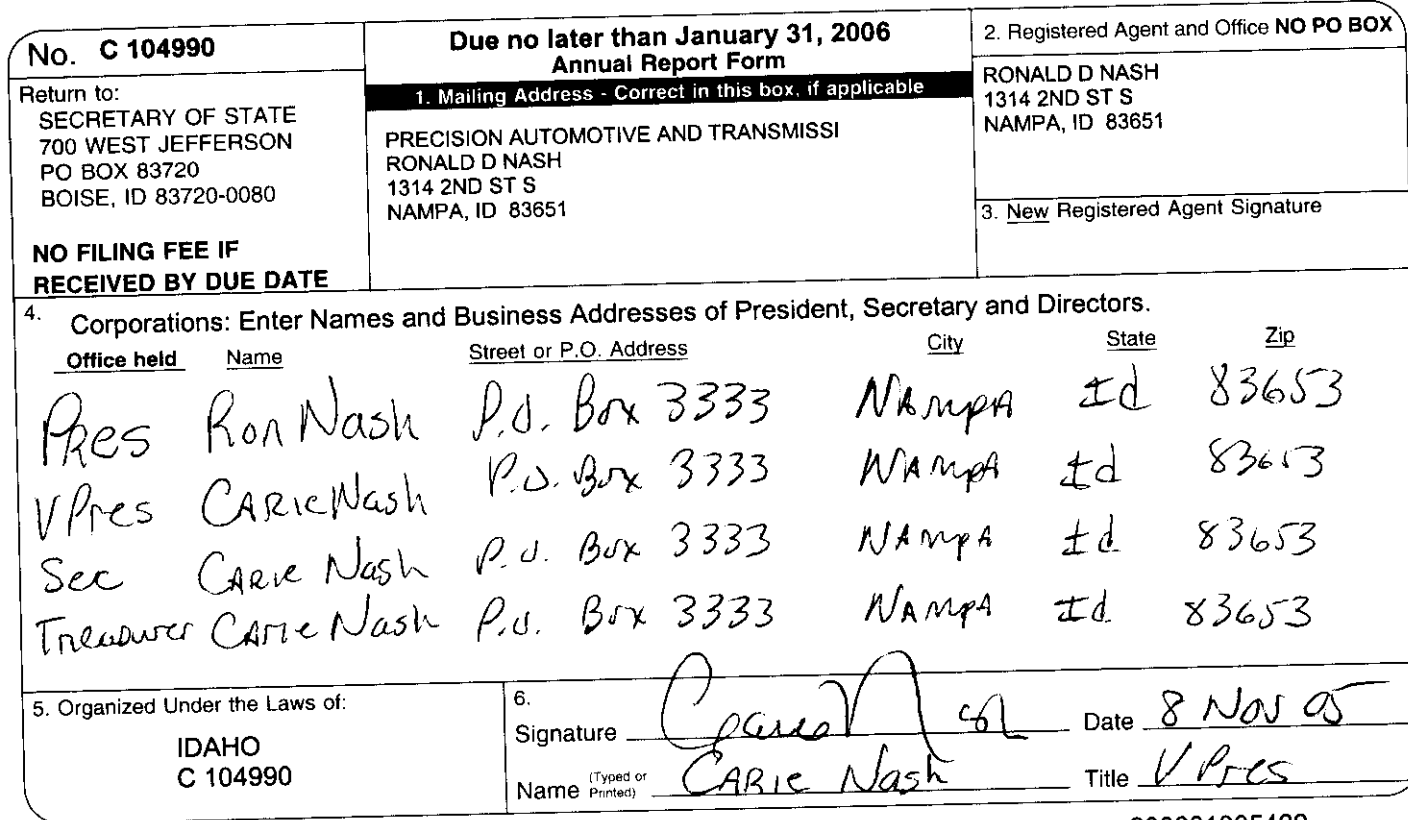 No. C 104990
Return to:
SECRETARY OF STATE
700 WEST JEFFERSON
PO BOX 83720
BOISE, ID 83720-0080
NO FILING FEE IF
RECEIVED BY DUE DATE
Due no later than January 31, 2006
Annual Report Form
1. Mailing Address - Correct in this box, if applicable
PRECISION AUTOMOTIVE AND TRANSMISSI
RONALD D NASH
1314 2ND ST S
NAMPA, ID 83651
2. Registered Agent and Office NO PO BOX
RONALD D NASH
1314 2ND ST S
NAMPA, ID 83651
3. New Registered Agent Signature
4. Corporations: Enter Names and Business Addresses of President, Secretary and Directors.
Office held Name Street or P.O. Address City State Zip
Pres Ron Nash P.O. Box 3333 Nampa Id 83653
V Pres Carie Nash P.O. Box 3333 Nampa Id 83653
Sec Carie Nash P.O. Box 3333 Nampa Id 83653
Treasurer Carie Nash P.O. Box 3333 Nampa Id 83653
5. Organized Under the Laws of:
IDAHO
C 104990
6.
Signature Carie Nash Date 8 Nov 05
Name (Typed or Printed) Carie Nash Title V Pres